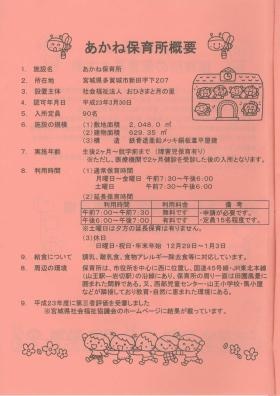 あかね保育所概要
1. 施設名 あかね保育所
2. 所在地 宮城県多賀城市新田字下207
3. 設置主体 社会福祉法人 おひさまと月の里
4. 認可年月日 平成23年3月30日
5. 入所定員 90名
6. 施設の規模 (1)敷地面積 2,048.0 ㎡
(2)建物面積 629.35 ㎡
(3)構 造 鉄骨造亜鉛メッキ鋼板葺平屋建
7. 実施年齢 生後2ヶ月~就学前まで (障害児保育有り)
※ただし、医療機関で2ヶ月健診を受診した後の入所となります。
8. 利用時間 (1)通常保育時間
月曜日~金曜日 午前7:30~午後6:00
土曜日 午前7:30~午後6:00
(2)延長保育時間
利用時間 利用料金 備 考
午前7:00~午前7:30 無料です ・申請が必要です。
午後6:00~午後7:00 有料です ・定員15名程度です。
※土曜日は夕方の延長保育は有りません。
(3)休日
日曜日・祝日・年末年始 12月29日~1月3日
9. 給食について 調乳、離乳食、食物アレルギー除去食等に対応しています。
8. 周辺の環境 保育所は、市役所を中心に西に位置し、国道45号線・JR東北本線
(山王駅―岩切駅)の沿線にあり、保育所の周り一面は田園風景に
囲まれた閑静です。又、西部児童センター・山王小学校・馬小屋
などが隣接しており教育・自然に恵まれた環境にある。
9. 平成23年度に第三者評価を受審しました
※宮城県社会福祉協議会のホームページに結果が載っています。